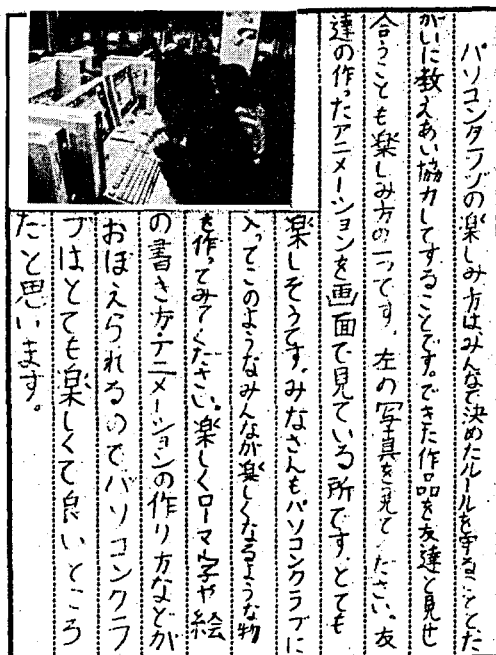 パソコンクラブの楽しみ方は、みんなで決めたルールを守ることとた
がいに教えあい協力してすることです。できた作品を友達と見せ
合うことも楽しみ方の一つです。左の写真を見てください。友
達の作ったアニメーションを画面で見ている所です。とても
楽しそうです。みなさんもパソコンクラブに
入ってこのようなみんなが楽しくなるような物
を作ってみてください。楽しくローマ字や絵
の書き方・アニメーションの作り方などが
おぼえられるのでパソコンクラ
ブはとても楽しくて良いところ
だと思います。